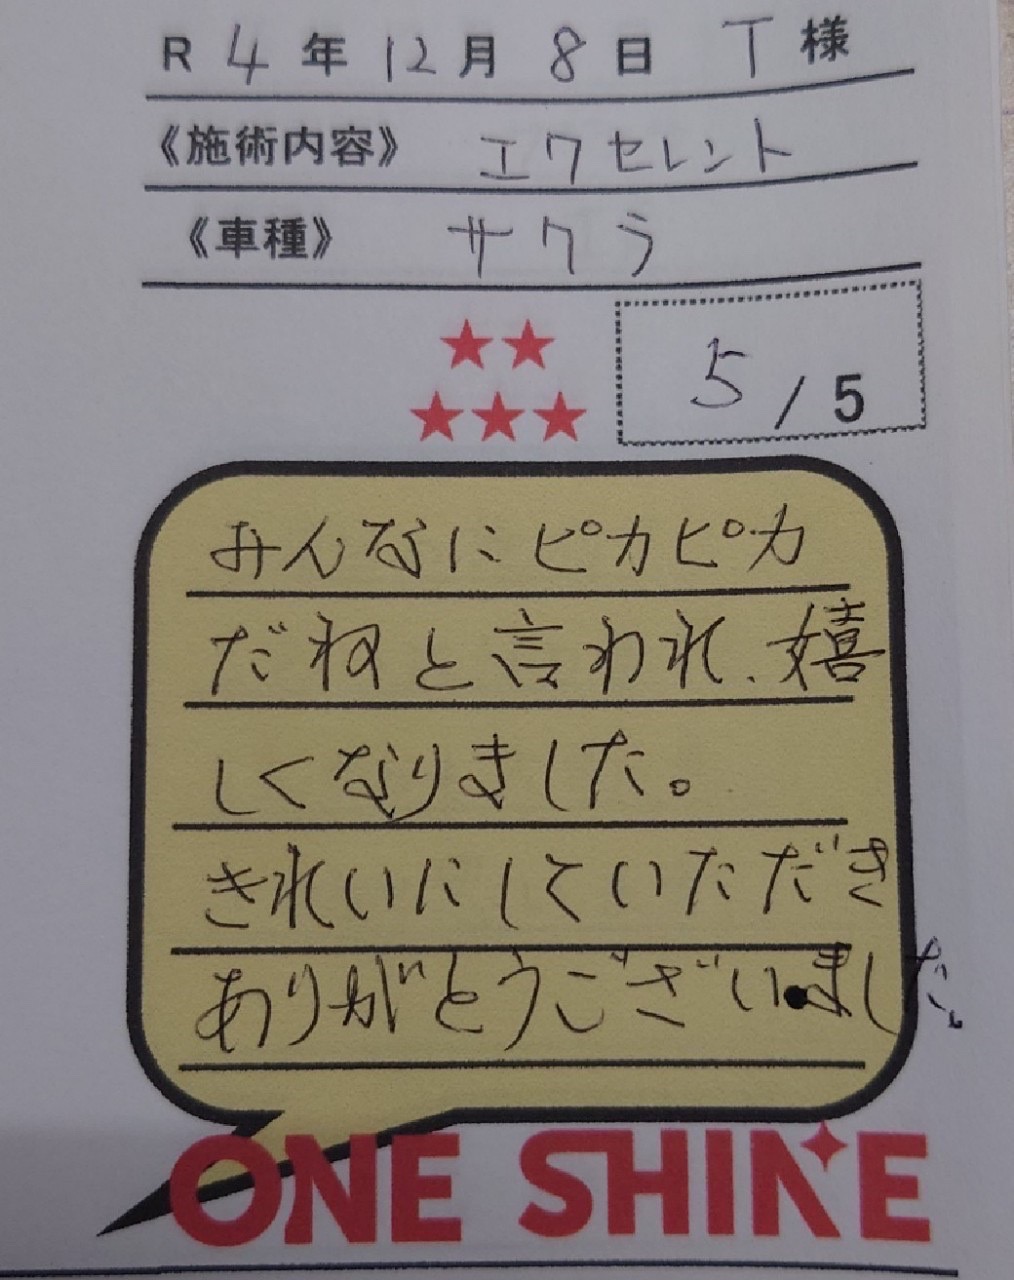 R 4 年 12 月 8 日 T 様
《施術内容》 エクセレント
《車種》 サクラ
★★
★★★
5 / 5
みんなにピカピカ
だねと言われ、嬉
しくなりました。
きれいにしていただき
ありがとうございました。
ONE SHINE